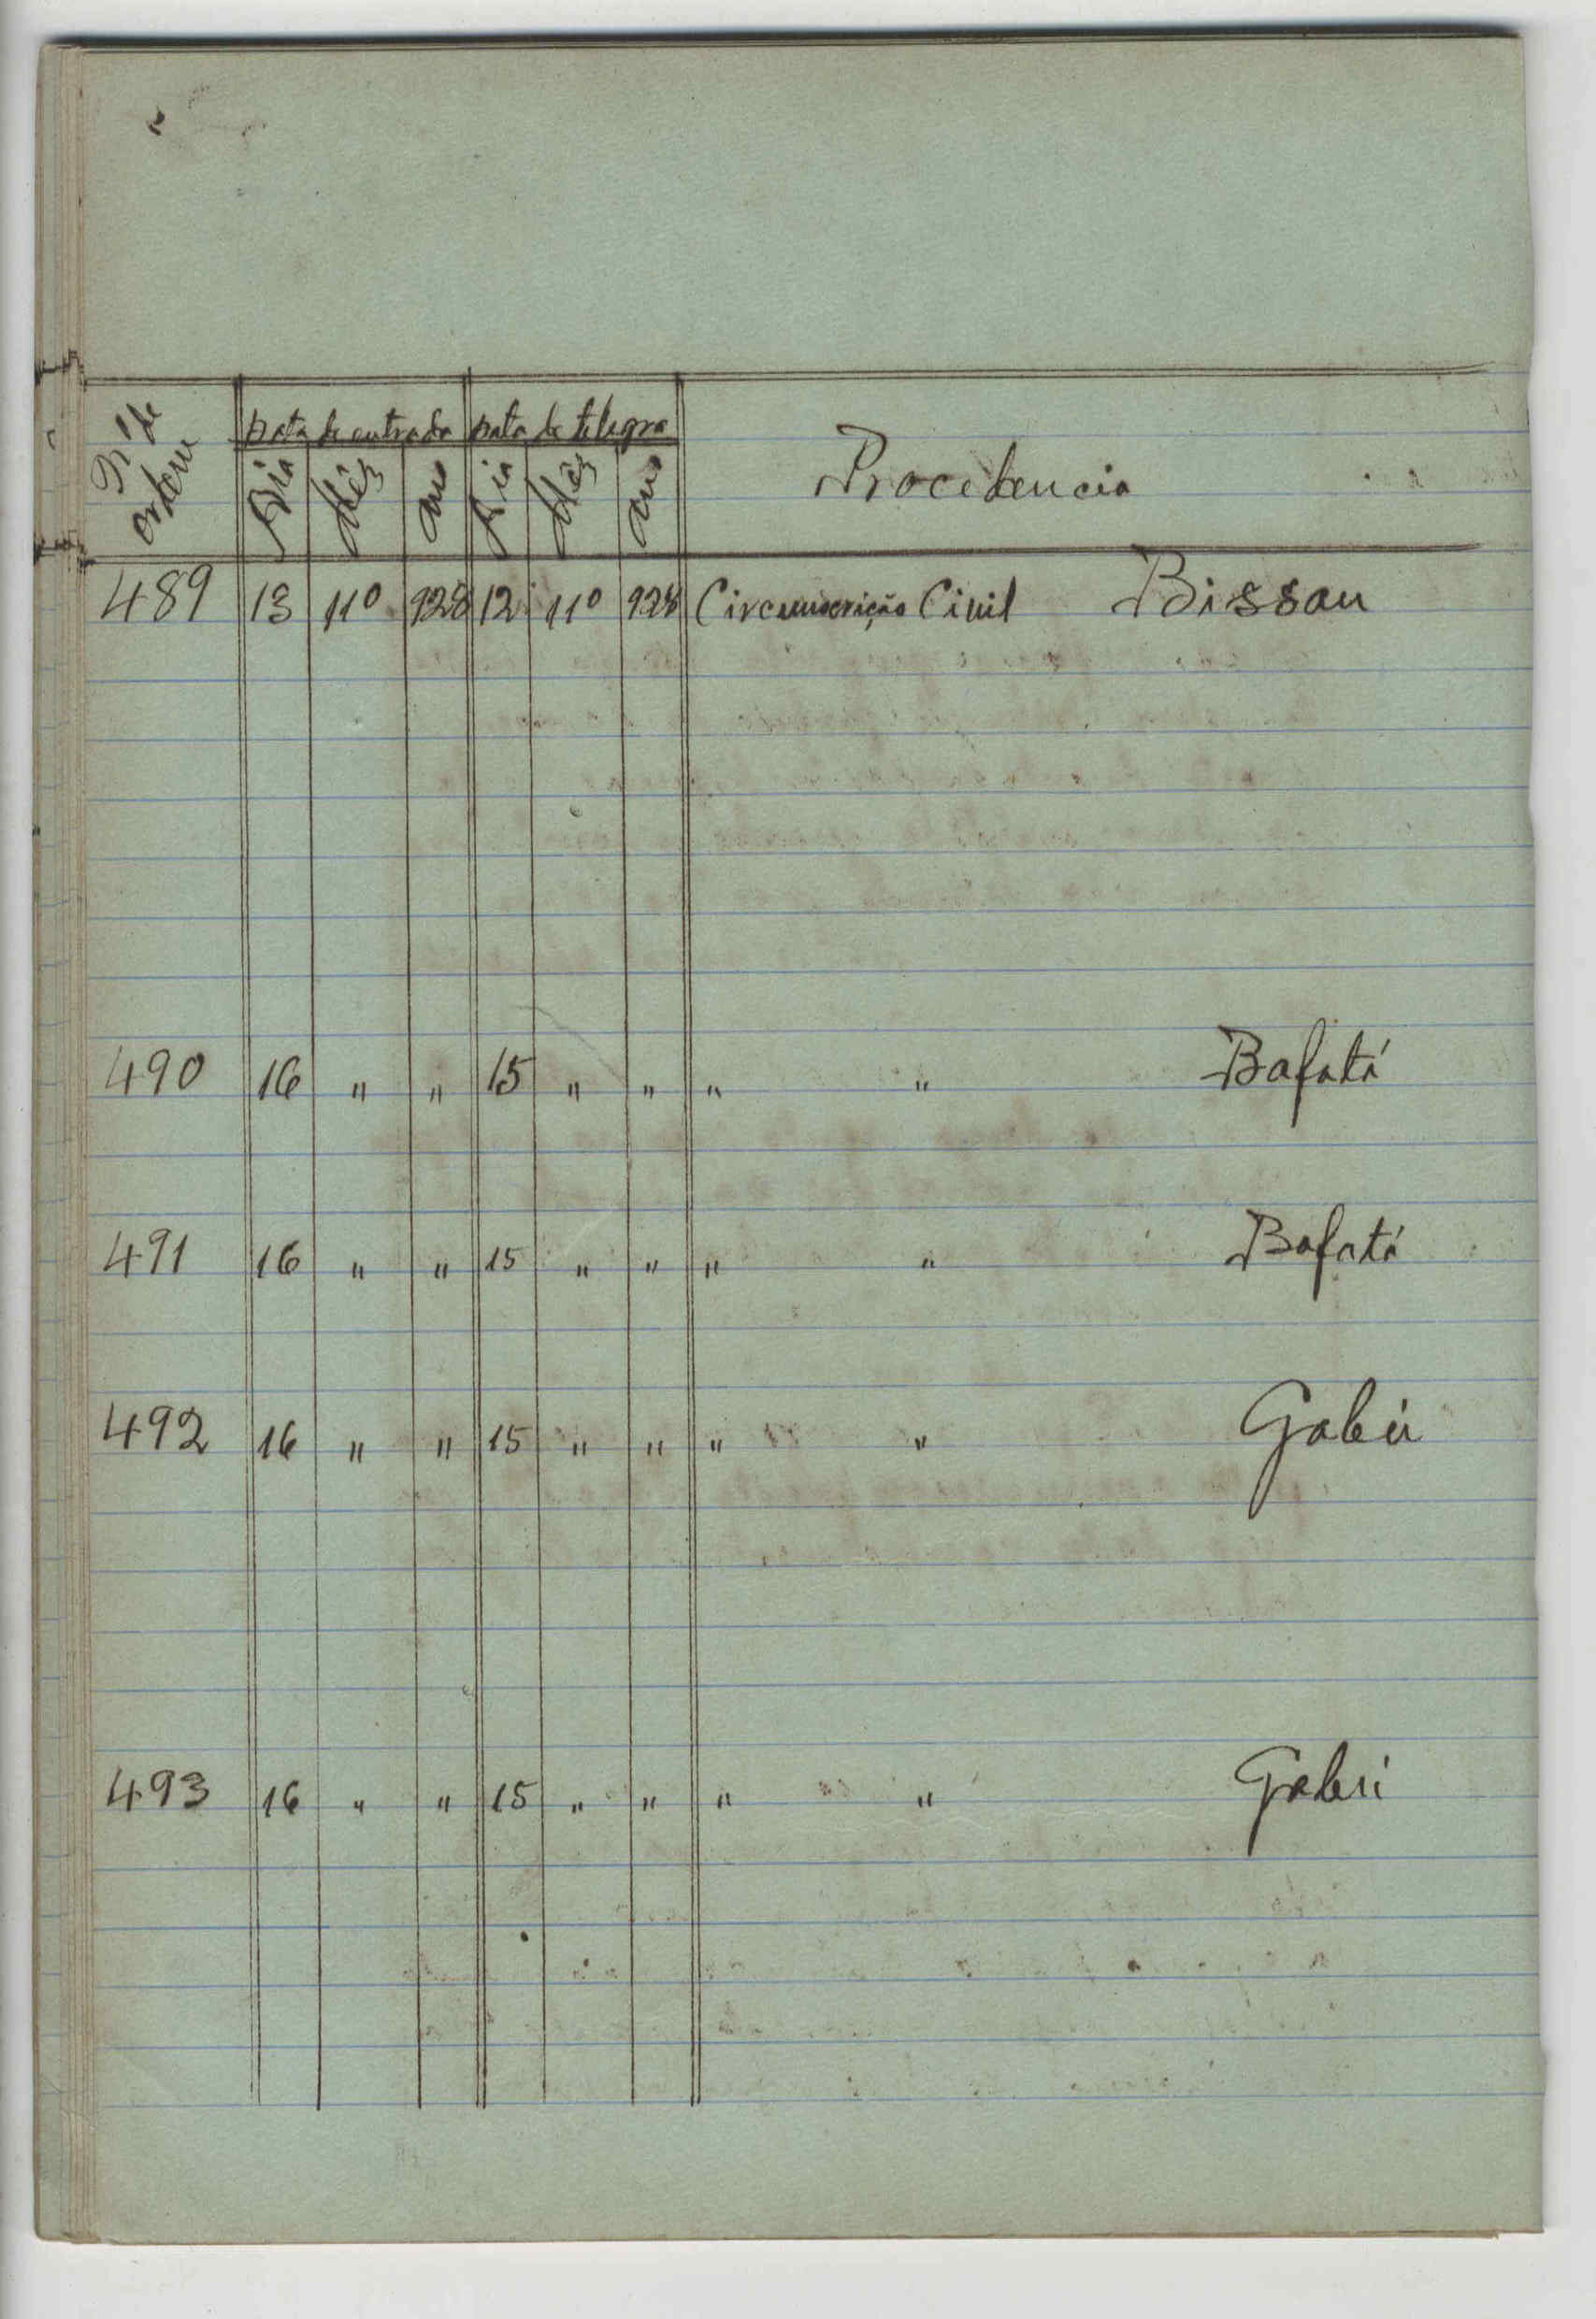 Nº de ordem
Data de entrada Data de telegra
Dia Mês ano Dia Mês ano Procedencia
489 13 11º 928 12 11º 928 Circunscrição Civil Bissau
490 16 " " 15 " " " " Bafatá
491 16 " " 15 " " " " Bafatá
492 16 " " 15 " " " " Gabú
493 16 " " 15 " " " " Gabú